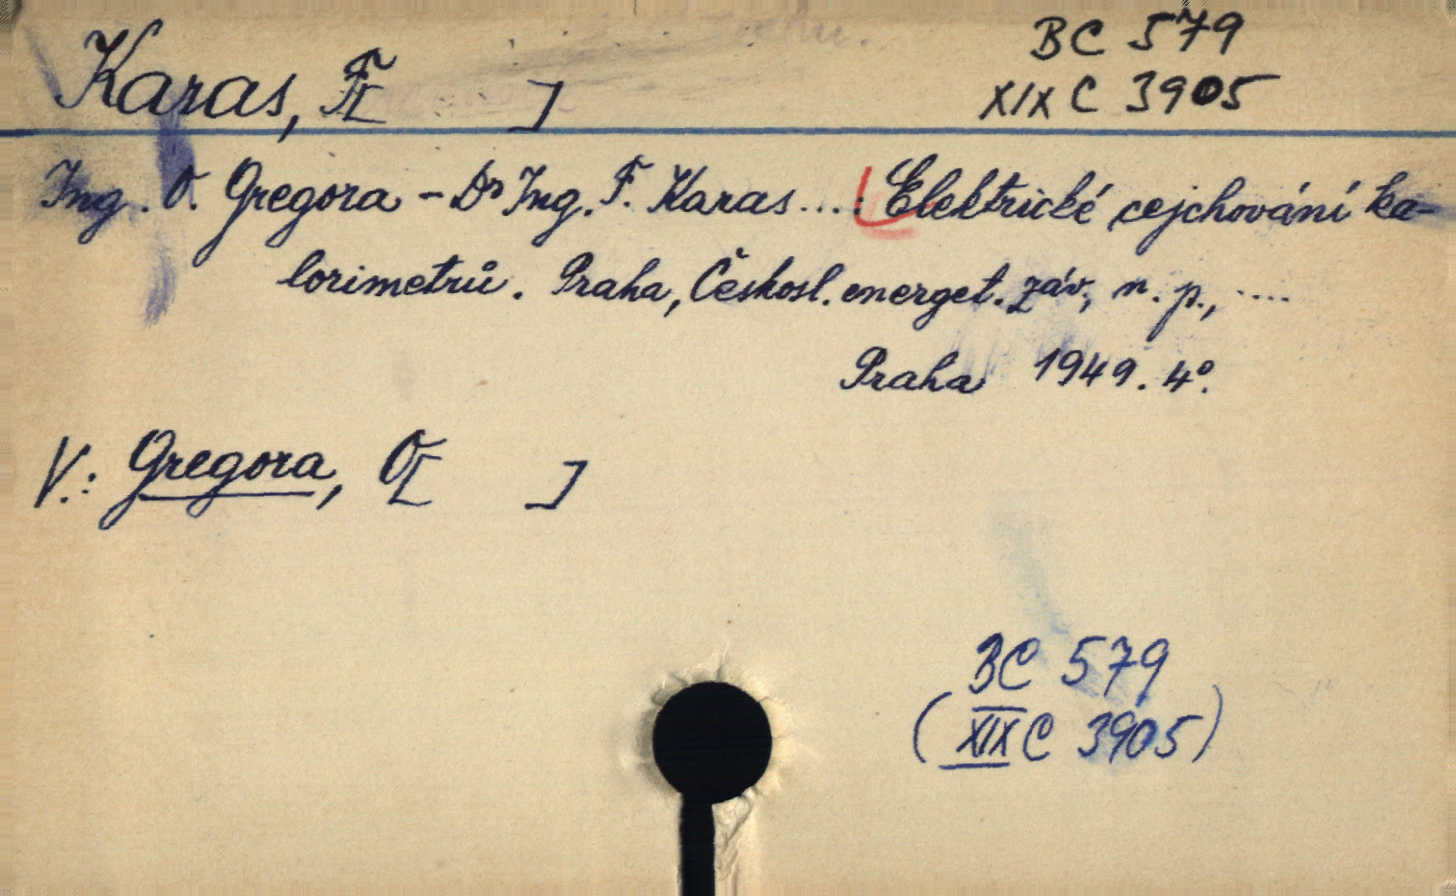 BC 579
Karas, F[ ]
XIX C 3905
Ing. O. Gregora - Dr Ing. F. Karas...: Elektrické cejchování ka-
lorimetrů. Praha, Českosl. energet. záv., n. p., ....
Praha 1949. 4°.
V.: Gregora, O[ ]
BC 579
(XIX C 3905)